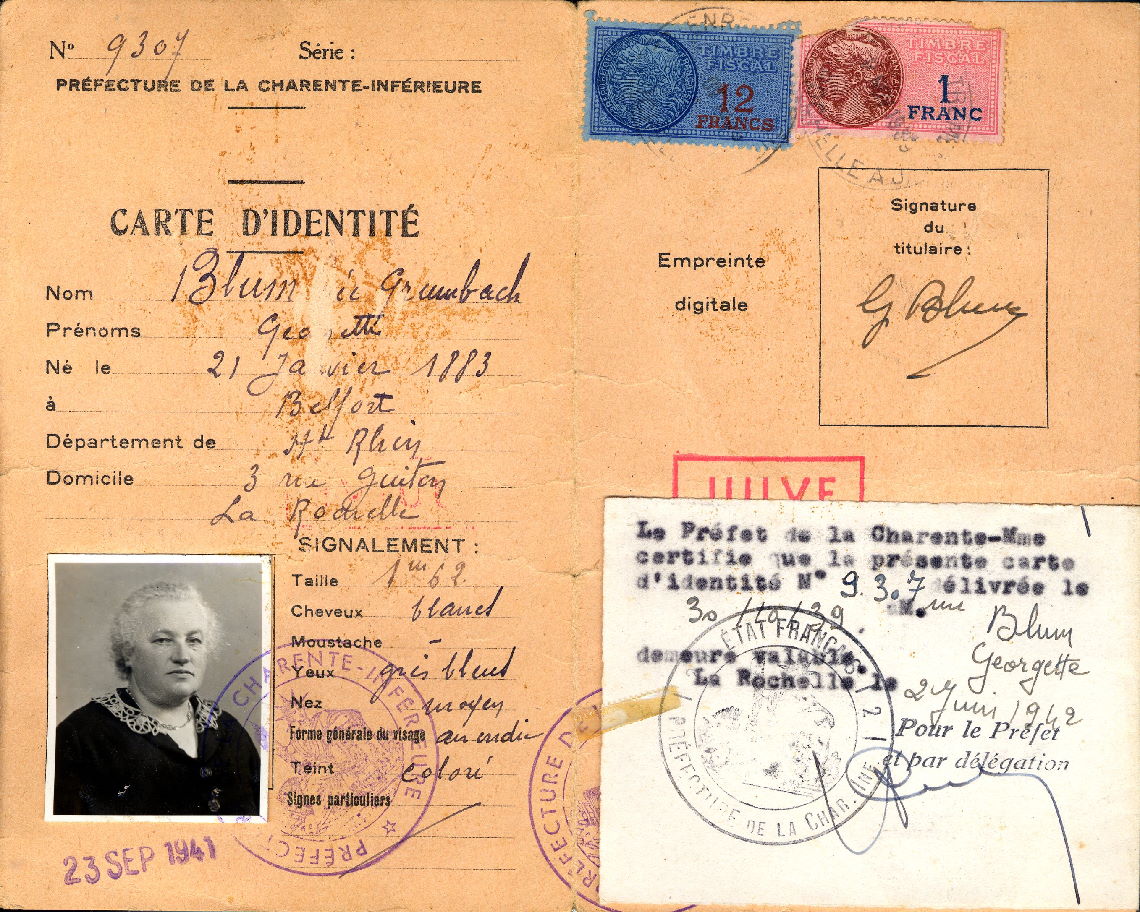 N° 9307 Série :
PRÉFECTURE DE LA CHARENTE-INFÉRIEURE
CARTE D'IDENTITÉ
Nom Blum née Grumbach
Prénoms Georgette
Né le 21 Janvier 1883
à Belfort
Département de Ht Rhin
Domicile 3 rue Guiton
La Rochelle
SIGNALEMENT :
Taille 1m62
Cheveux blancs
Moustache –
Yeux gris bleus
Nez moyen
Forme générale du visage arrondie
Teint coloré
Signes particuliers
23 SEP 1941
CHARENTE-INFÉRIEURE
PRÉFECTURE DE
TIMBRE FISCAL
12 FRANCS
TIMBRE FISCAL
1 FRANC
Empreinte
digitale
Signature
du
titulaire :
G Blum
JUIVE
Le Préfet de la Charente-Mme
certifie que la présente carte
d'identité N° 9.3.7 délivrée le
30/10/39. M.me Blum
Georgette
demeure valable.
La Rochelle le 2 Juin 1942
Pour le Préfet
et par délégation
ÉTAT FRANÇAIS
PRÉFECTURE DE LA CHAR. INF.